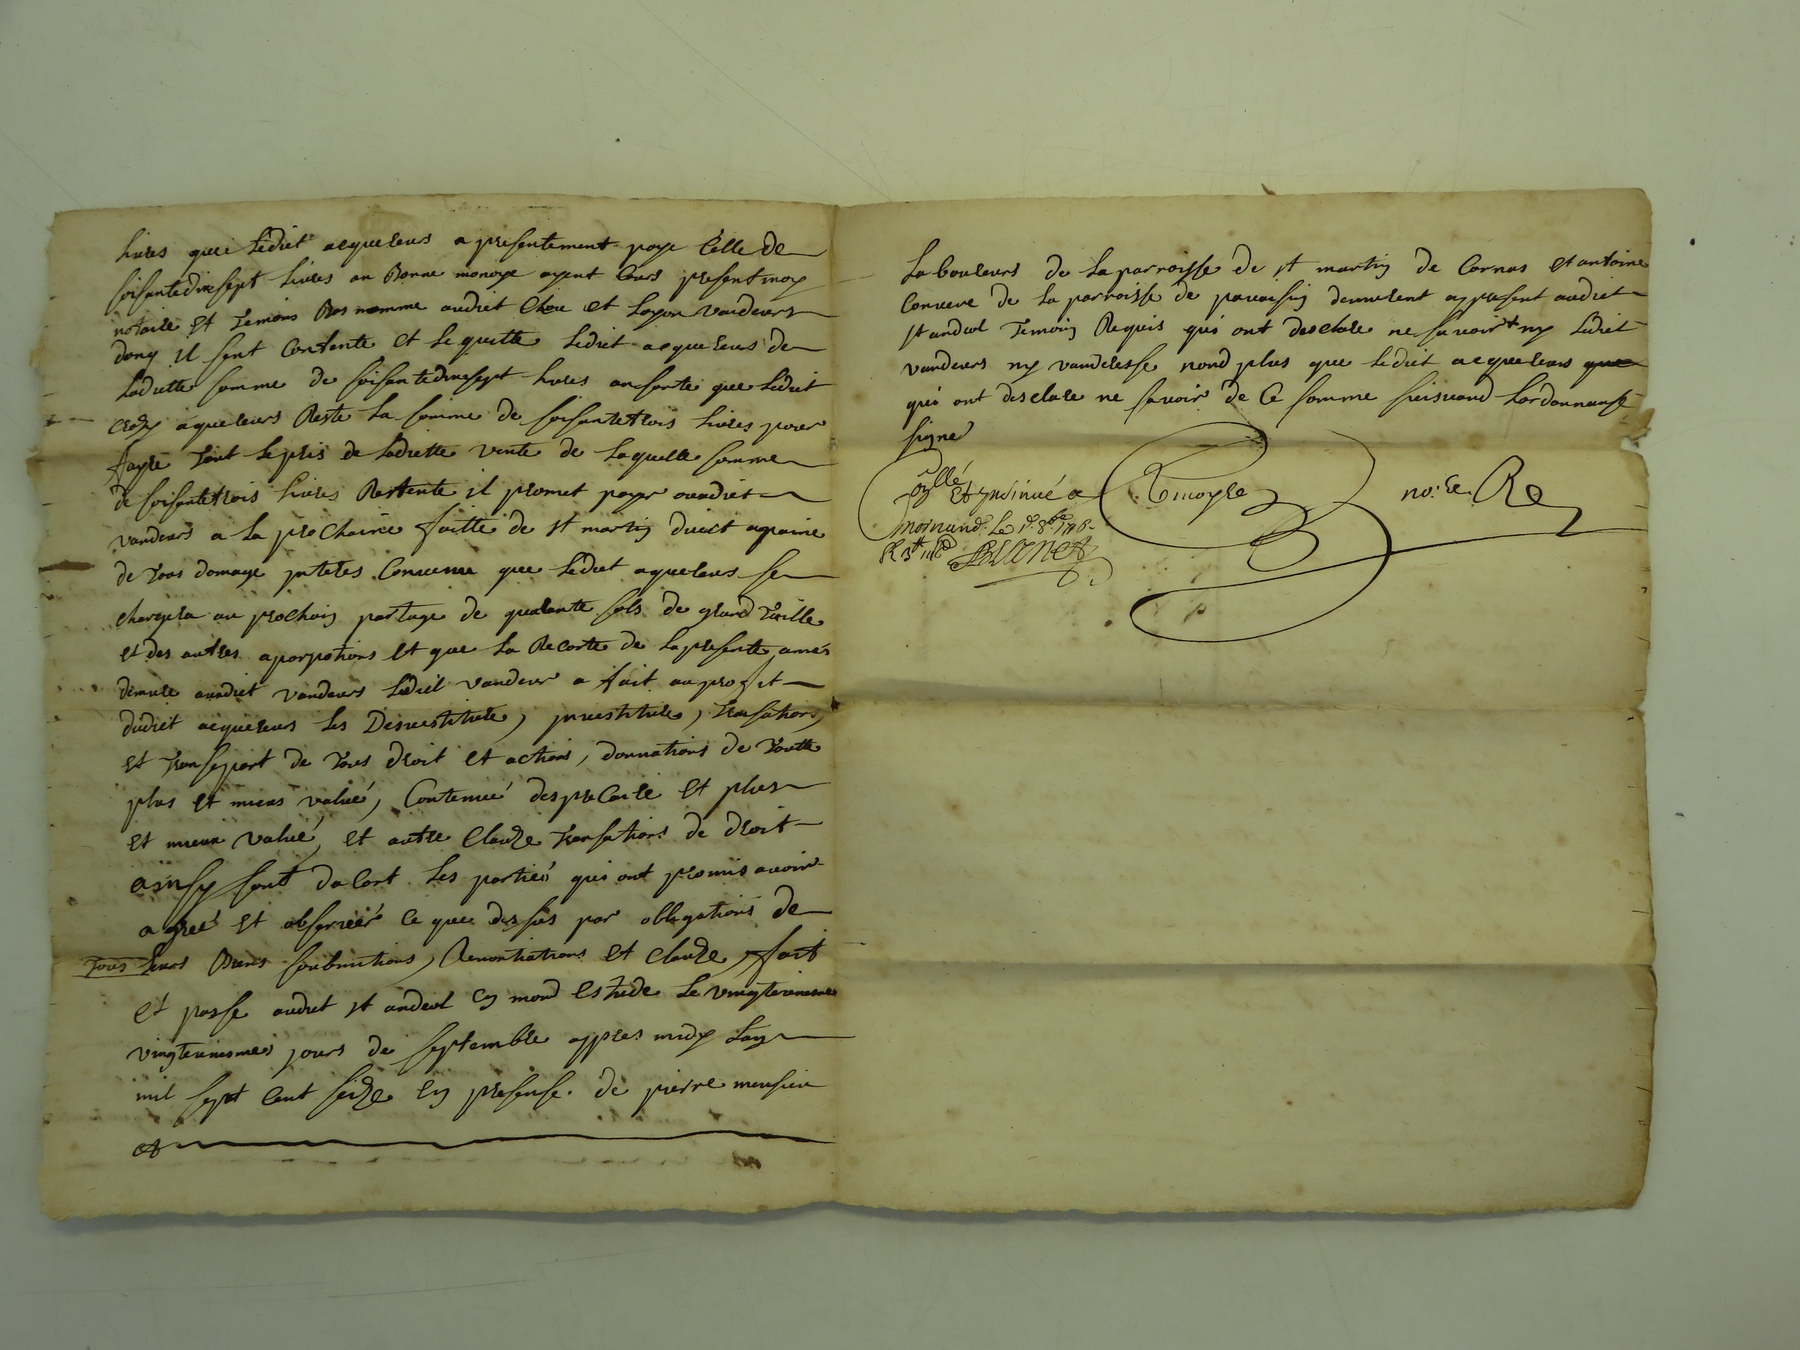 livres que ledict acquereurs a presentement paye Celle de
soisantedixsept livres an Bonne monoye ayent Cours present moy
notaire et temoins Bas nomme audict et vandeurs
donq il sent Contente et le quitte ledict acquereurs de
Laditte somme de soisantedixsept livres an sorte que ledict
aquereurs Reste La somme de soisantetrois livres pour
fayre tout le pris de Laditte vente de laquelle somme
de soisantetrois livres Restente il promet payer audict
vandeurs a la prochaine faitte de st martin duict apaine
de tous domage jnteres Convenu que ledict aquereurs se
chargera au prochain partage de quarante sols de grand taille
et des autres et que la Recorte de la presente anné
demure audict vandeurs ledict vandeur a fait au profit
dudict acquereurs les Desvestiture, jnvestiture, transations,
et transeport de tous droit et actions, donnations de toutte
plus et mieus valué, Contenué desprecaire et plus
et mieux valué, et autre Clauze transations de droit
ainsy sont dacort les partiés qui ont promis avoir
agreé et observér ce que dessus par obligations de
tous leurs Biens soubmitions, Renontiations et clauze, fait
et passe audict st andeol en mond estude le vingteuniesme
vingteuniesmes jours de septembre appres midy Lan
mil sept cent seize en presense de pierre
et
Laboureurs de la parroisse de st martin de Cornas et antoine
de la parroisse de demurent appresent audict
st andeol temoins Requis qui ont desclare ne savoir ny ledict
vandeurs ny vanderesse nond plus que ledict acquereurs que
qui ont desclare ne savoir de ce somme suivand lordonnanse
signe
et ynsinué a
mornand. Le
no.re Re